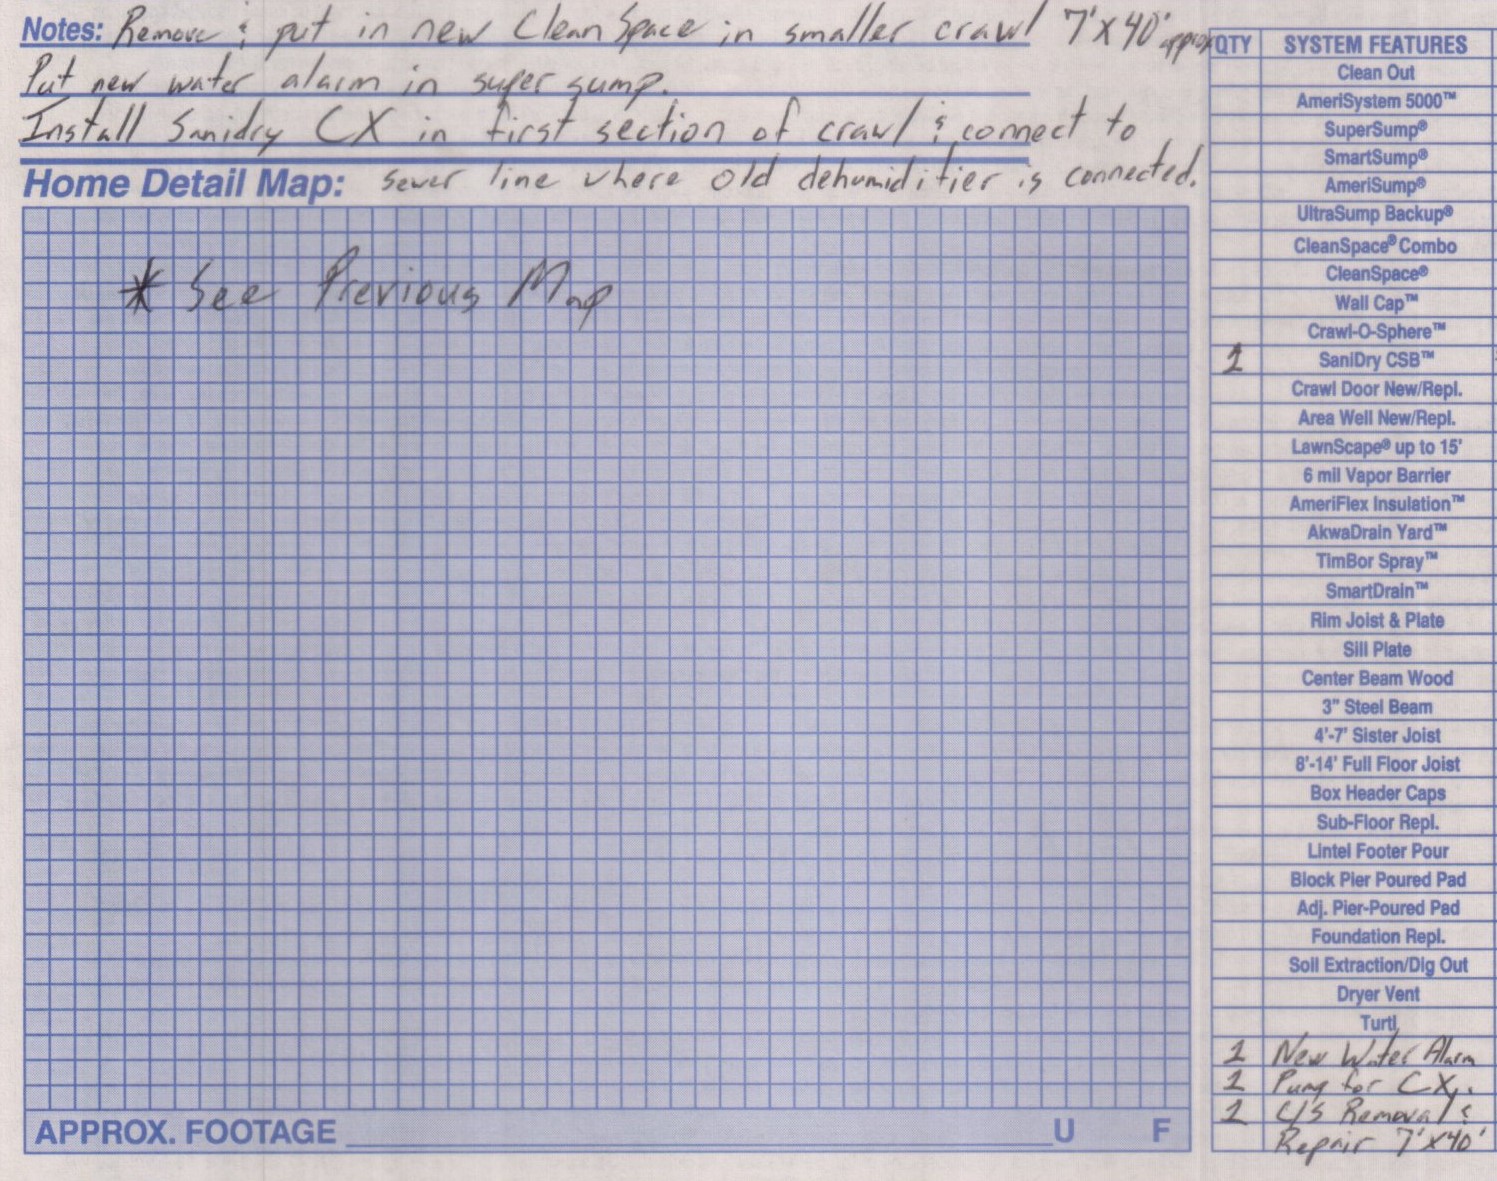 Notes: Remove & put in new CleanSpace in smaller crawl 7'x40' approx
Put new water alarm in super sump.
Install Sanidry CX in first section of crawl & connect to
Home Detail Map: sewer line where old dehumidifier is connected.
* See Previous Map
APPROX. FOOTAGE U F
QTY SYSTEM FEATURES
Clean Out
AmeriSystem 5000™
SuperSump®
SmartSump®
AmeriSump®
UltraSump Backup®
CleanSpace® Combo
CleanSpace®
Wall Cap™
Crawl-O-Sphere™
1 SaniDry CSB™
Crawl Door New/Repl.
Area Well New/Repl.
LawnScape® up to 15'
6 mil Vapor Barrier
AmeriFlex Insulation™
AkwaDrain Yard™
TimBor Spray™
SmartDrain™
Rim Joist & Plate
Sill Plate
Center Beam Wood
3" Steel Beam
4'-7' Sister Joist
8'-14' Full Floor Joist
Box Header Caps
Sub-Floor Repl.
Lintel Footer Pour
Block Pier Poured Pad
Adj. Pier-Poured Pad
Foundation Repl.
Soil Extraction/Dig Out
Dryer Vent
Turtl
1 New Water Alarm
1 Pump for CX
1 C/S Removal &
Repair 7'x40'